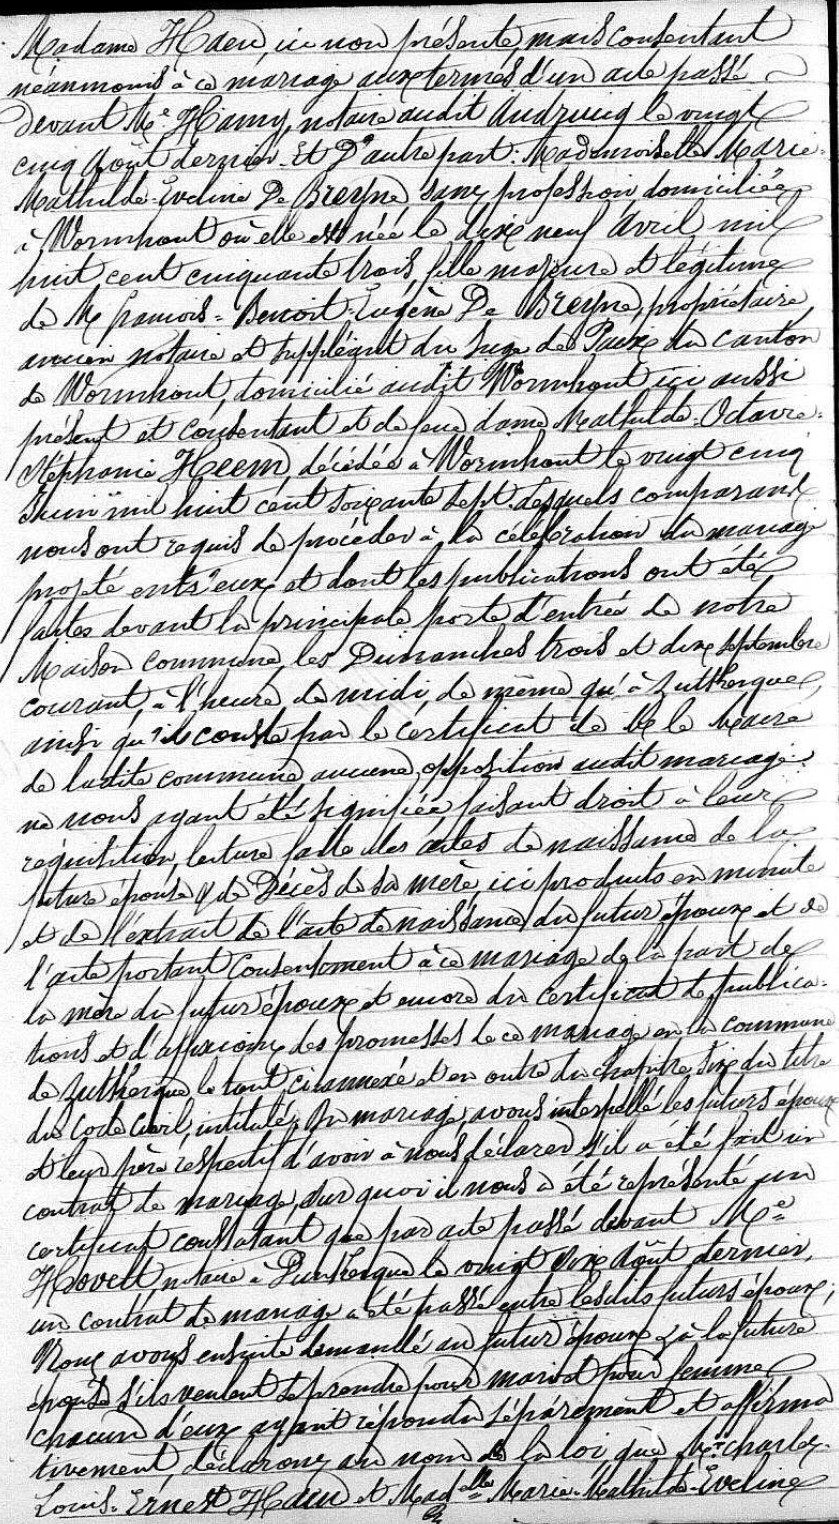 Madame Haeu, ici non présente, mais consentant
néanmoins à ce mariage aux termes d'un acte passé
devant Me Hamy, notaire audit Audruicq le vingt
cinq Août dernier. Et D'autre part: Mademoiselle Marie-
Mathilde-Eveline De Breyne, sans profession, domiciliée
à Wormhout où elle est née le dix neuf Avril mil
huit cent cinquante trois, fille majeure et légitime
de M. François-Benoit-Eugène De Breyne, propriétaire,
ancien notaire et suppléant du Juge de Paix du canton
de Wormhout, domicilié audit Wormhout ici aussi
présent et consentant et de feue dame Mathilde-Octavie-
Stéphanie Heem, décédée à Wormhout le vingt cinq
Juin mil huit cent soixante sept. Lesquels comparants
nous ont requis de procéder à la célébration du mariage
projeté entr'eux et dont les publications ont été
faites devant la principale porte d'entrée de notre
Maison commune, les Dimanches trois et dix septembre
courant, à l'heure de midi, de même qu'à Zutkerque,
ainsi qu'il conste par le certificat de M. le Maire
de ladite commune aucune opposition audit mariage
ne nous ayant été signifiée, faisant droit à leur
réquisition, lecture faite des actes de naissance de la
future épouse & de Décès de sa mère, ici produits en minute
et de l'extrait de l'acte de naissance du futur époux et de
l'acte portant consentement à ce mariage de la part de
la mère du futur époux et encore du certificat de publica-
tions et d'affixions des promesses de ce mariage en la commune
de Zutkerque, le tout ci annexé et en outre du chapitre six du titre
du Code Civil, intitulé Du mariage, avons interpellé les futurs époux
et leur père respectif d'avoir à nous déclarer s'il a été fait un
contrat de mariage, sur quoi il nous a été représenté un
certificat constatant que par acte passé devant Me
Hovelt, notaire à Dunkerque le vingt six Août dernier,
un contrat de mariage a été passé entre lesdits futurs époux,
Nous avons ensuite demandé au futur époux & à la future
épouse s'ils veulent se prendre pour mari et pour femme,
chacun d'eux ayant répondu séparément et affirma
tivement, déclarons au nom de la loi que Mr Charles-
Louis-Ernest Haeu et Madelle Marie-Mathilde-Eveline